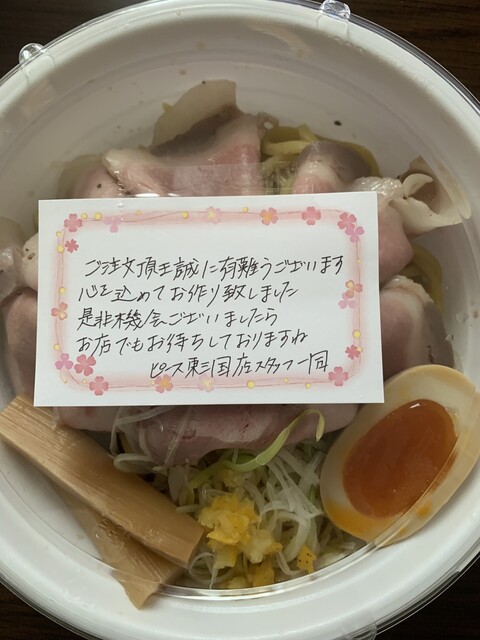 ご注文頂き誠に有難うございます
心を込めてお作り致しました
是非機会ございましたら
お店でもお待ちしておりますね
ピース東三国店スタッフ一同